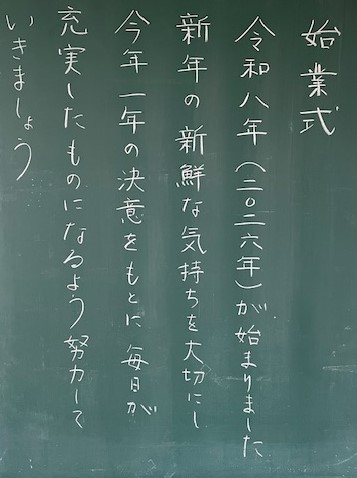 始業式
令和八年(二〇二六年)が始まりました
新年の新鮮な気持ちを大切にし
今年一年の決意をもとに毎日が
充実したものになるよう努力して
いきましょう